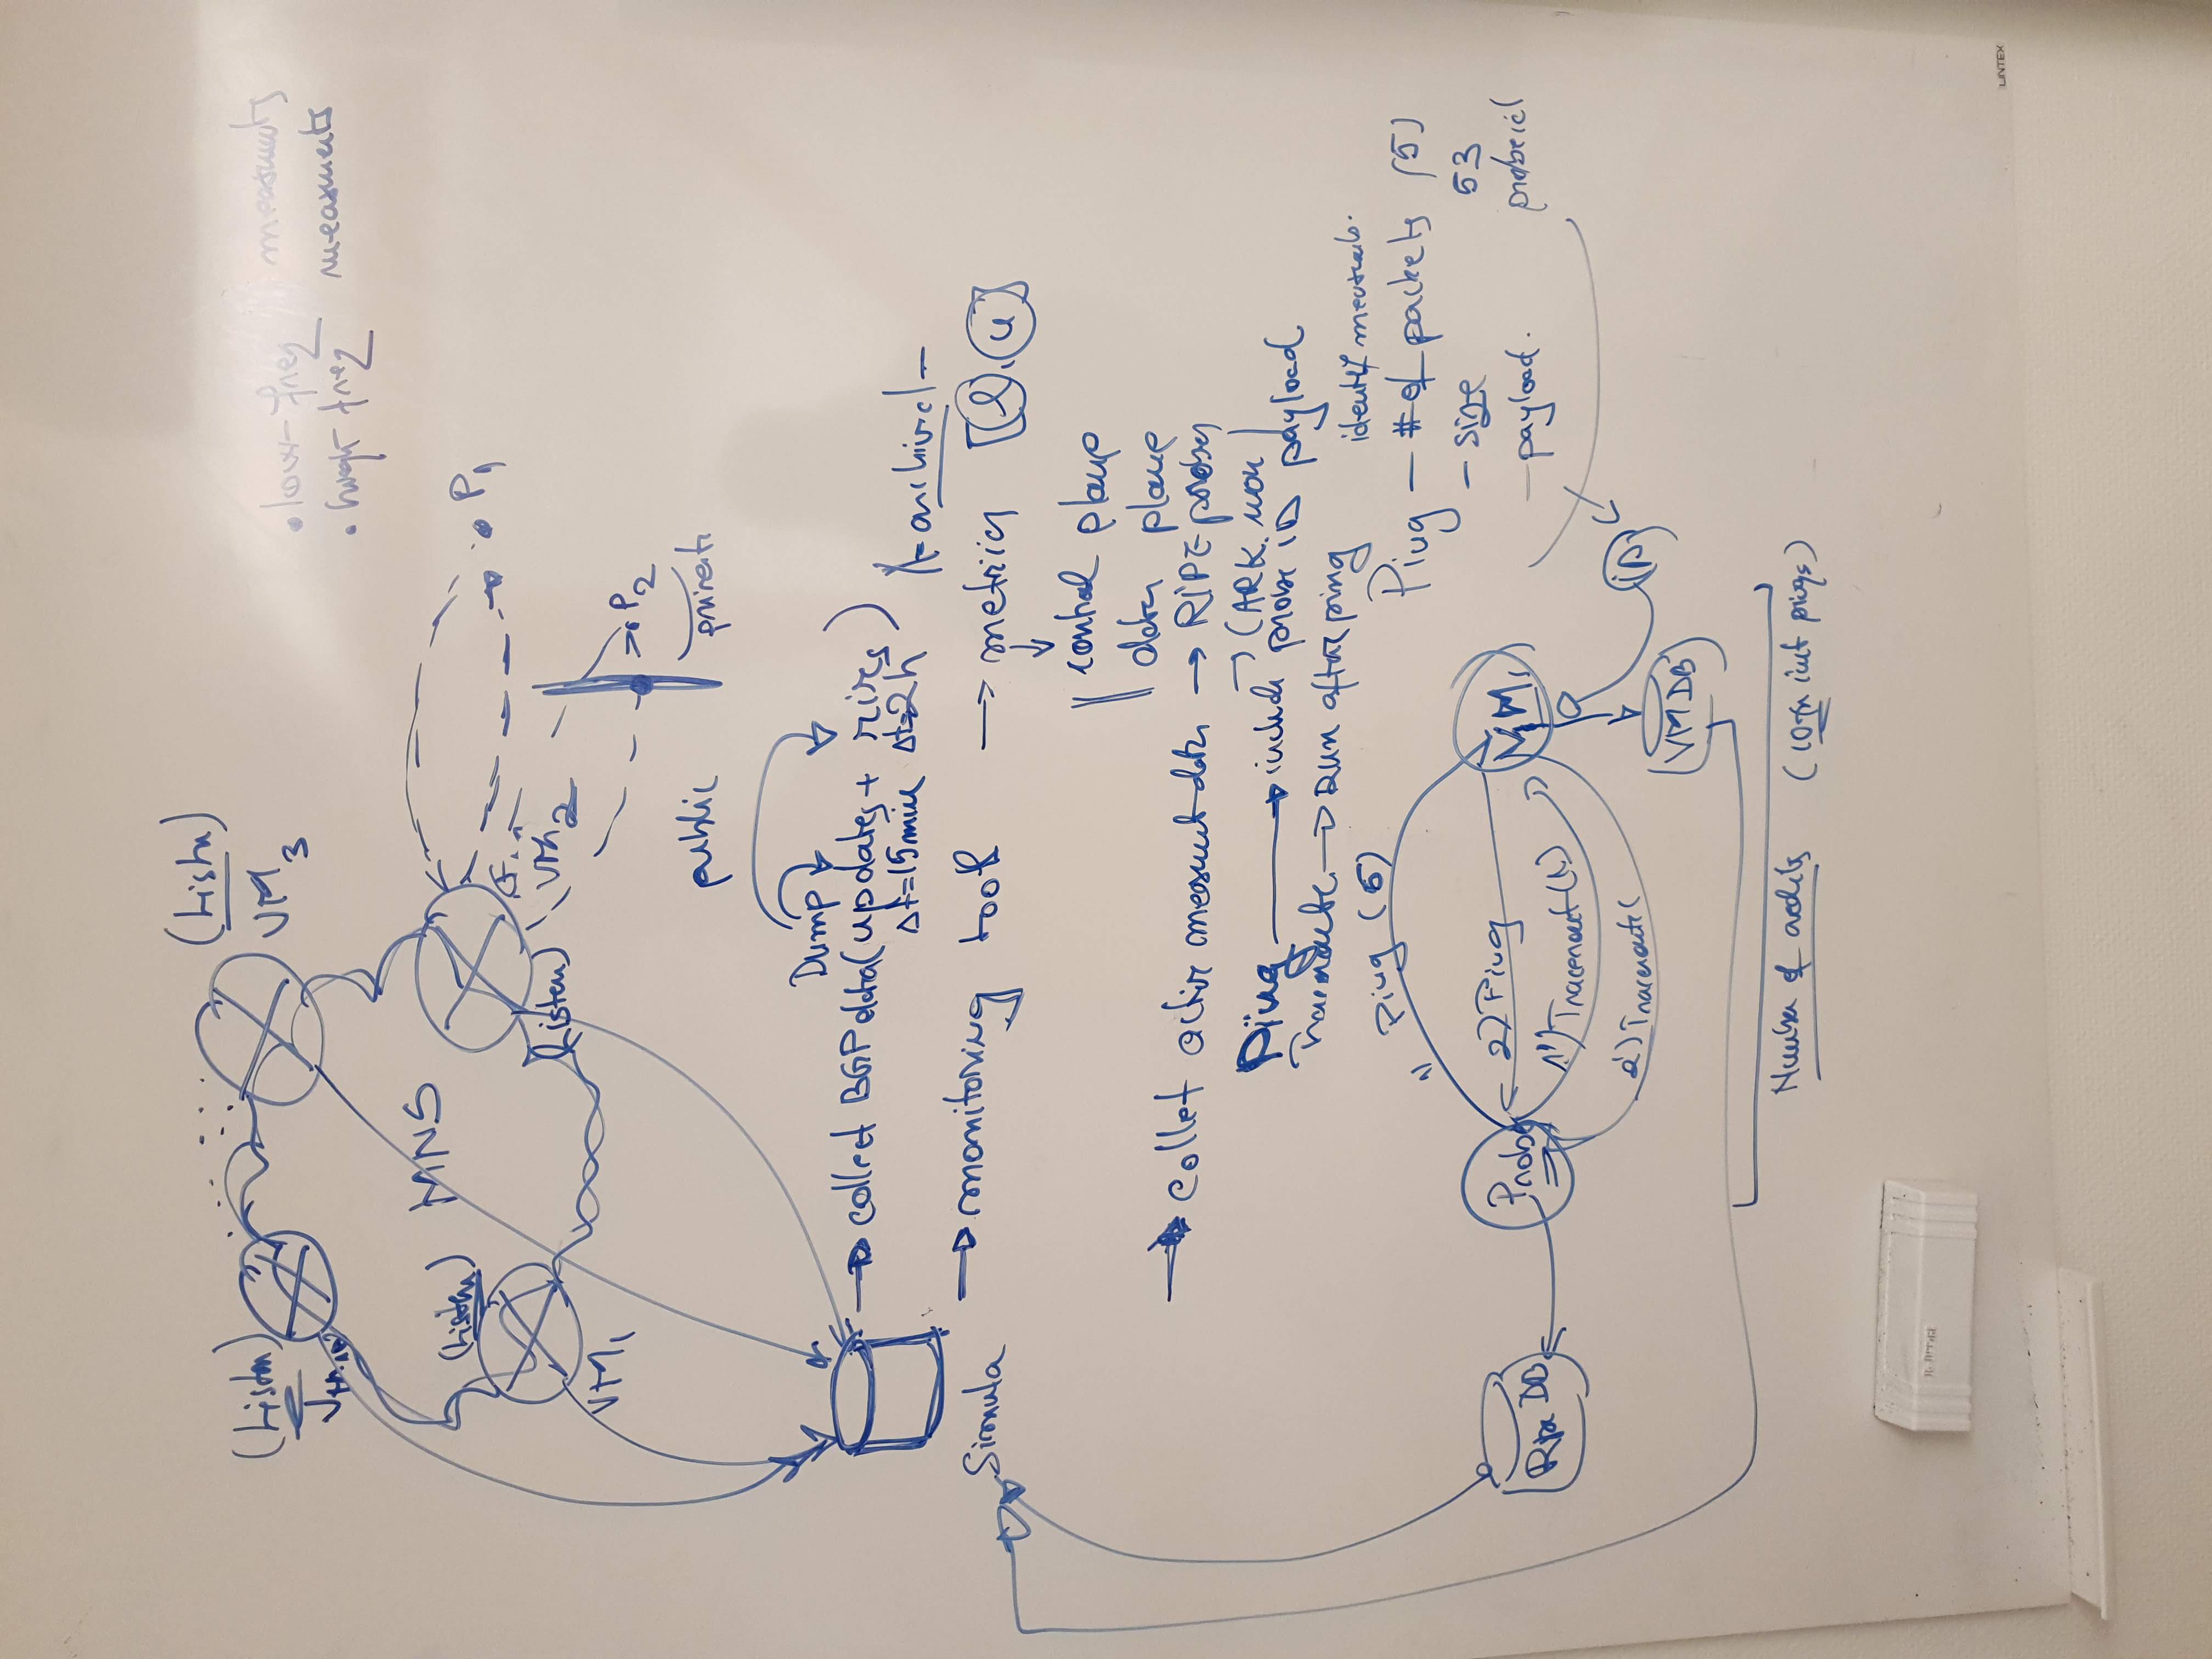 (Listn)
(Listen)
VM3
• low-freq measments
• high freq measments
MNS
(Listen)
P1
VM2
(Listen)
VM1
P2
public
private
Dump
→ collect BGP data (updates + ribs)
Δt=15min Δt=2h
archival -
Simula
→ monitoring tool → metrics [l, u]
control plane
data plane
→ collet activ measumt data → RIPE probes
→ (ARK mon
Ping → include probe ID payload
Traceroute → Run after ping
identif measumts.
Ping (5)
1)
Ping - # of packets (5)
- size 53
- payload. probeid
2) Ping
Probe
VM1
Ripe DB
1') Traceroute (1)
2') Traceroute (
ID
VM DB
Number of credits
pings)
LINTEX